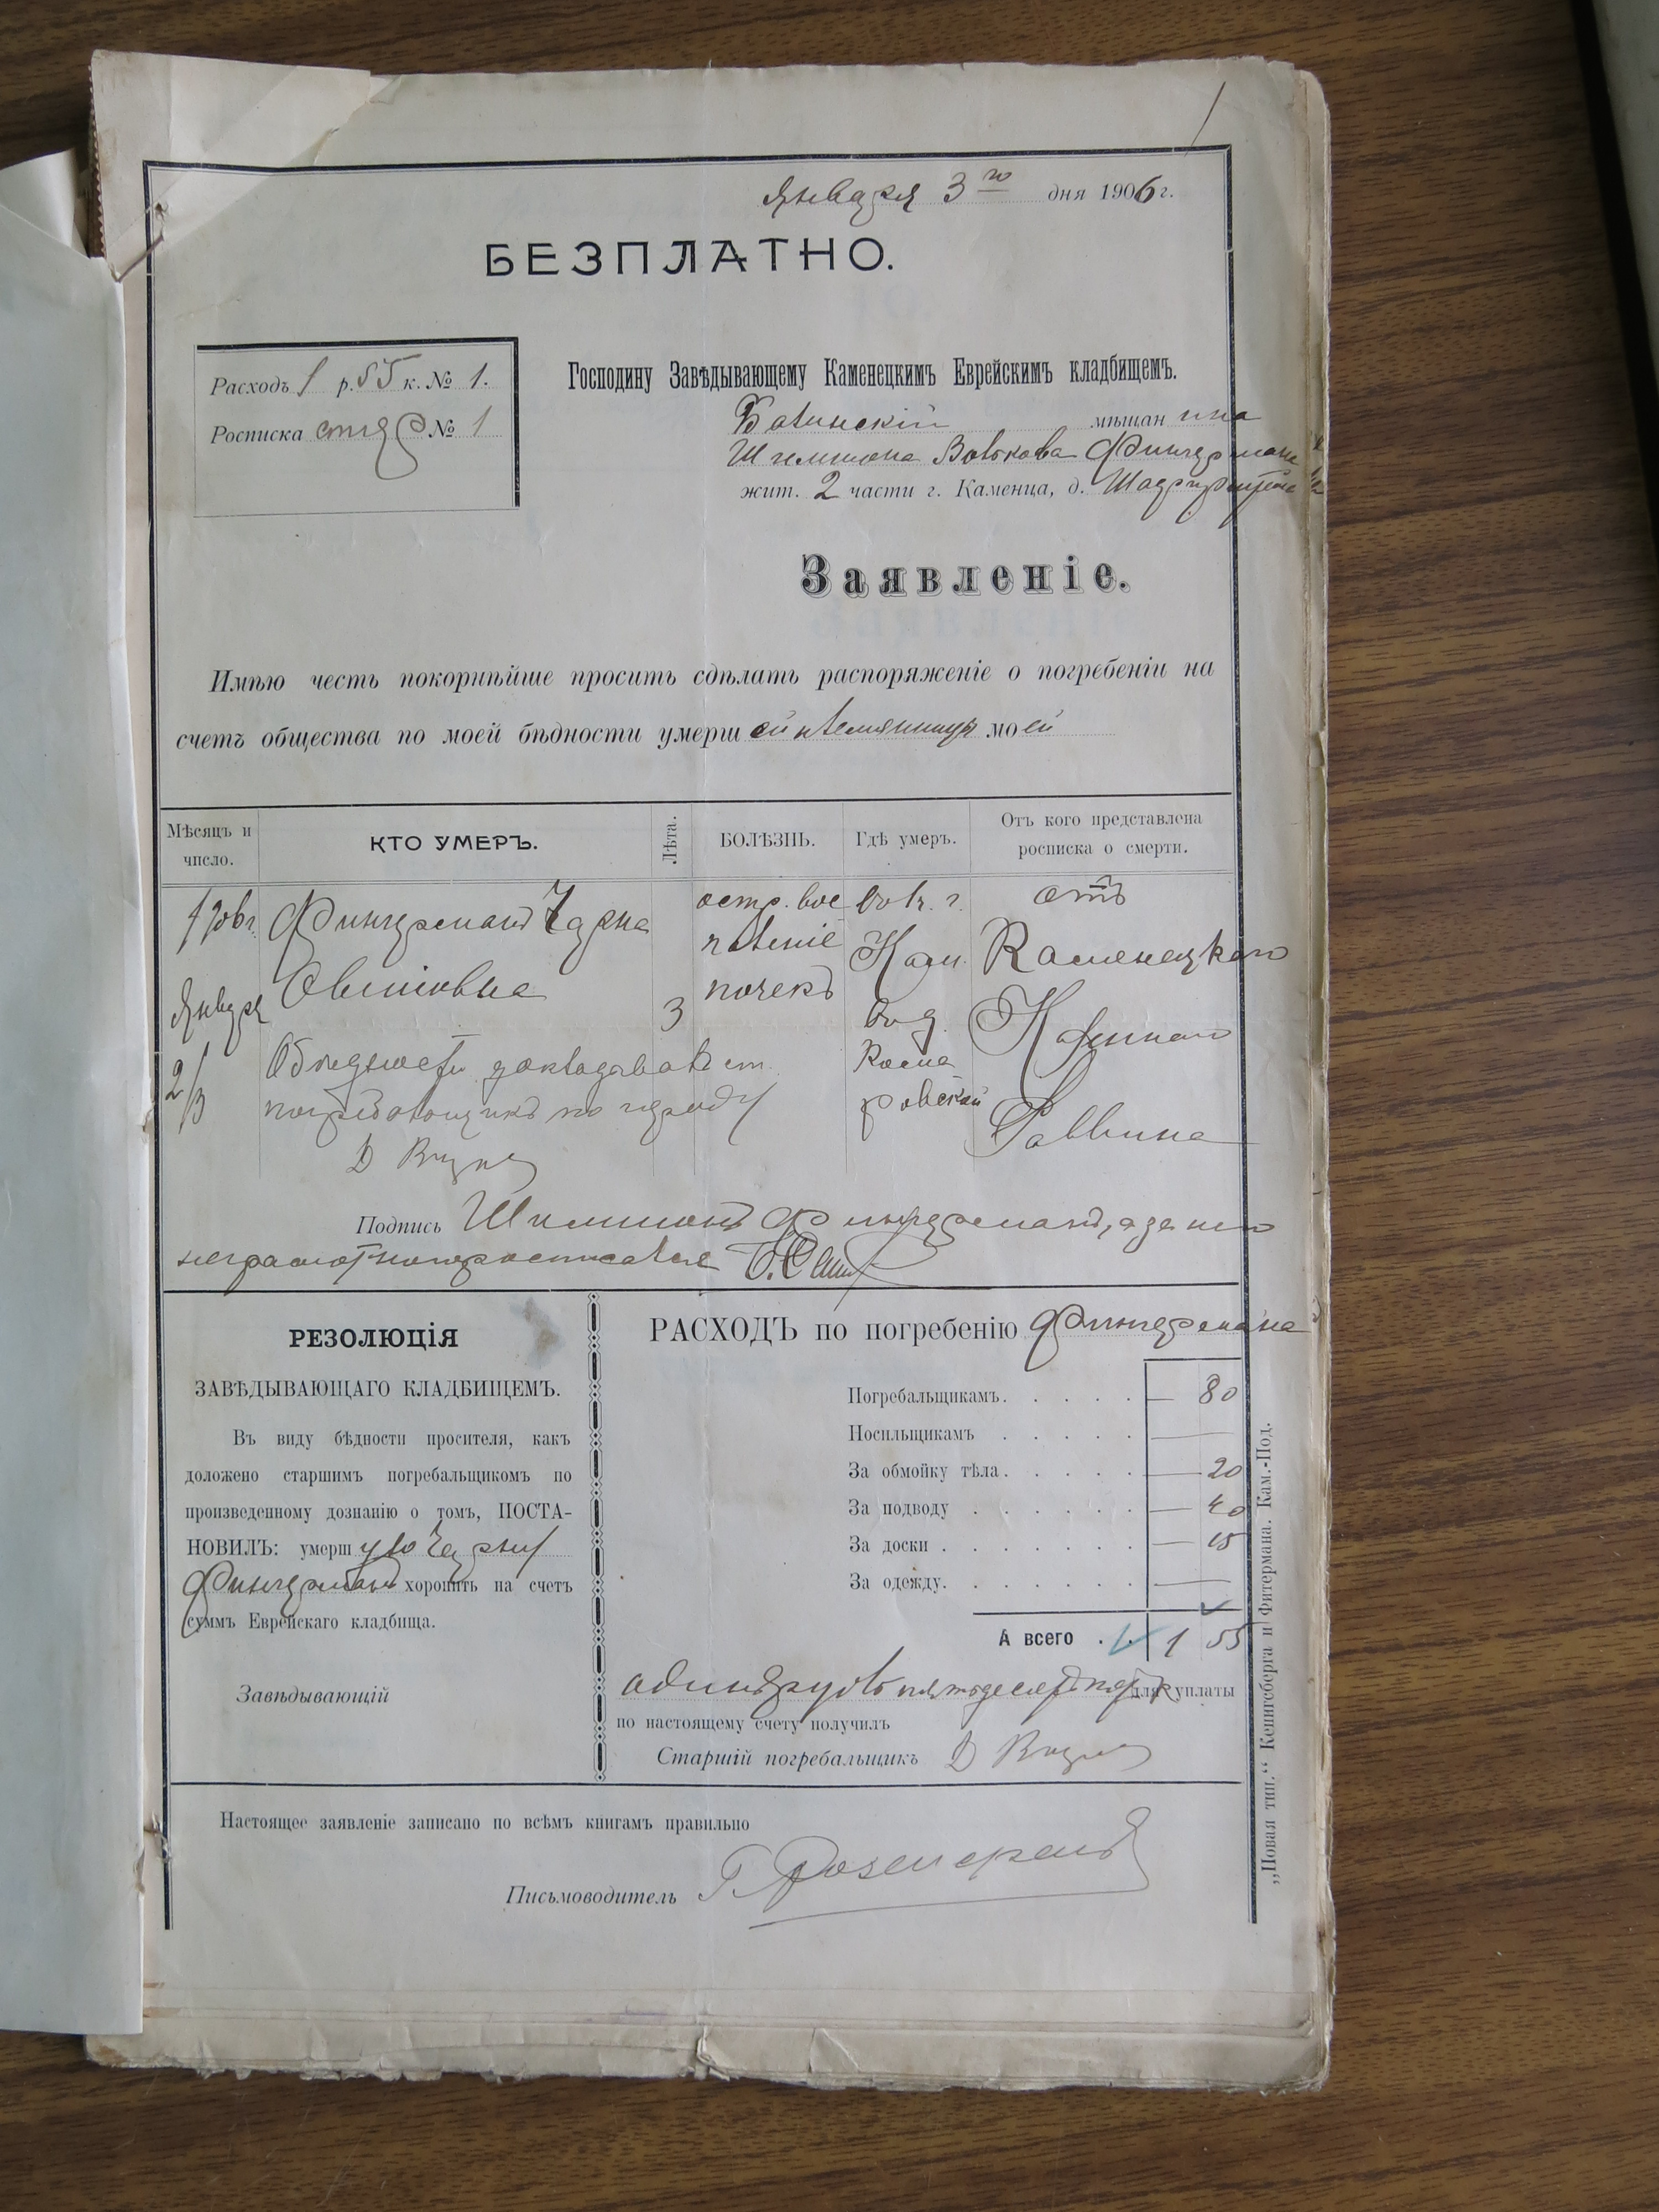 1
Января 3го дня 1906 г.
БЕЗПЛАТНО.
Расходъ 1 р. 55 к. № 1.
Росписка № 1
Господину Завѣдывающему Каменецкимъ Еврейскимъ кладбищемъ.
мѣщан ина
Шмилиона Волькова Фингермана
жит. 2 части г. Каменца, д.
Заявленіе.
Имѣю честь покорнѣйше просить сдѣлать распоряженіе о погребеніи на
счетъ общества по моей бѣдности умерш ей племянницы мо ей
Мѣсяцъ и число.
КТО УМЕРЪ.
Лѣта.
БОЛѢЗНЬ.
Гдѣ умеръ.
Отъ кого представлена росписка о смерти.
Фингерманъ Чарна
января
2/3
3
остр. вос
паленіе
почекъ
въ г.
Кам.
въ д.
отъ
Каменецкаго
Казеннаго
Раввина
Подпись Фингерманъ, а за него
неграмотнаго росписался
РЕЗОЛЮЦІЯ
ЗАВѢДЫВАЮЩАГО КЛАДБИЩЕМЪ.
Въ виду бѣдности просителя, какъ
доложено старшимъ погребальщикомъ по
произведенному дознанію о томъ, ПОСТА-
НОВИЛЪ: умерш ую Чарну
Фингерманъ хоронить на счетъ
суммъ Еврейскаго кладбища.
Завѣдывающій
РАСХОДЪ по погребенію Фингермана
Погребальщикамъ. . . . . — 80
Носильщикамъ . . . . . —
За обмойку тѣла. . . . . — 20
За подводу . . . . . . — 40
За доски . . . . . . . — 15
За одежду. . . . . . . —
А всего . . 1 55
одинъ рубль пятьдесятъ пять к для уплаты
по настоящему счету получилъ
Старшій погребальщикъ
Настоящее заявленіе записано по всѣмъ книгамъ правильно
Письмоводитель Г. Розенгренъ
„Новая тип.“ Кенигсберга и Фитермана. Кам.-Под.